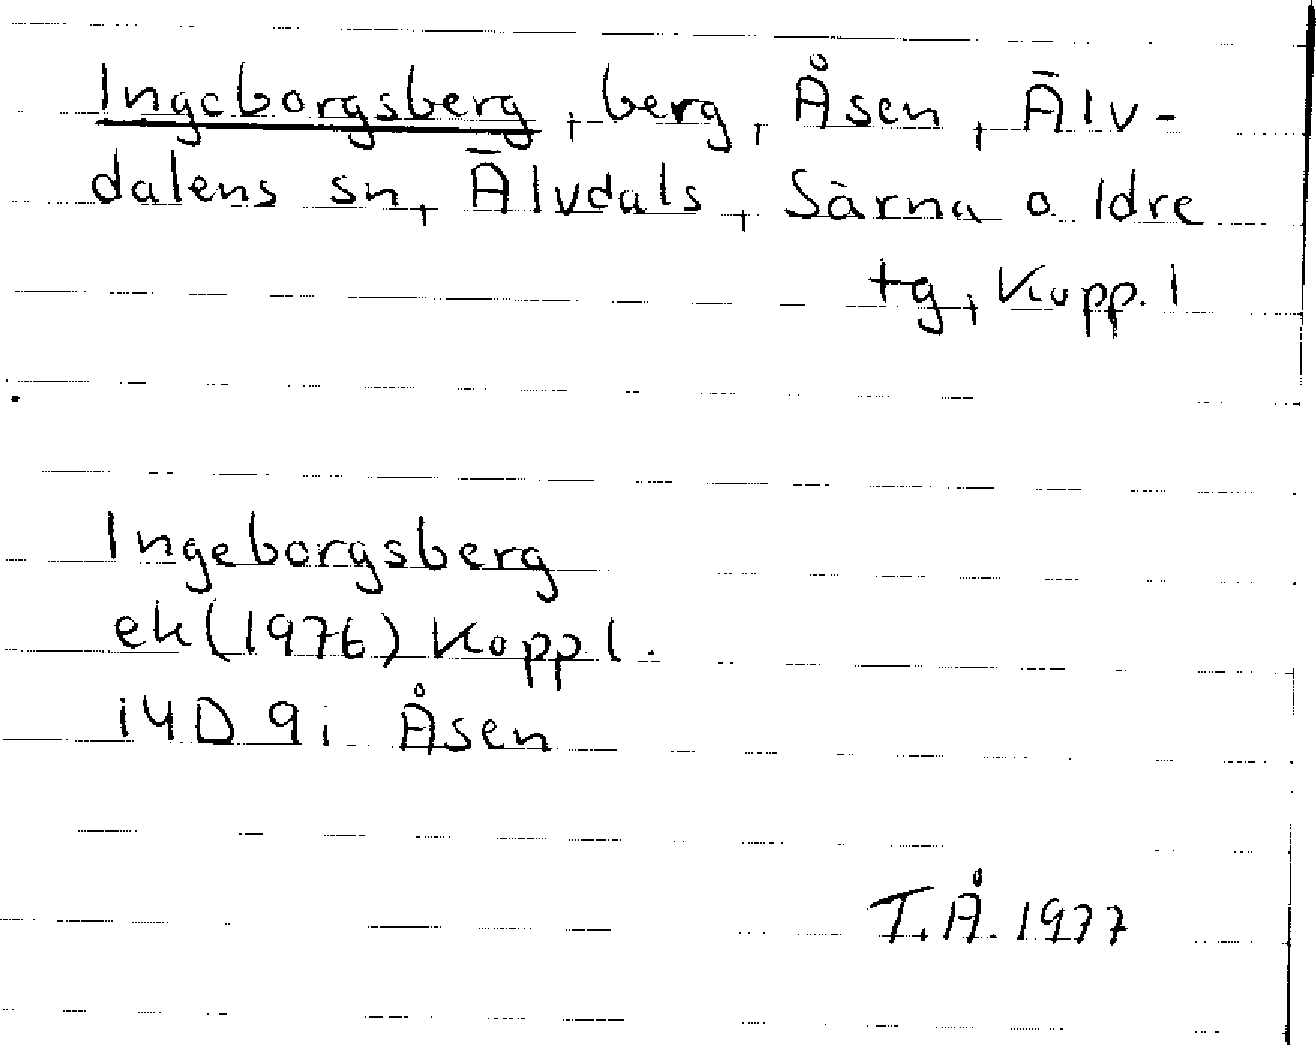 Ingeborgsberg, berg, Åsen, Älv-
dalens sn, Älvdals, Särna o. Idre
tg, Kopp. l
Ingeborgsberg
ek (1976) Kopp l.
14D 9i Åsen
T.Å. 1977